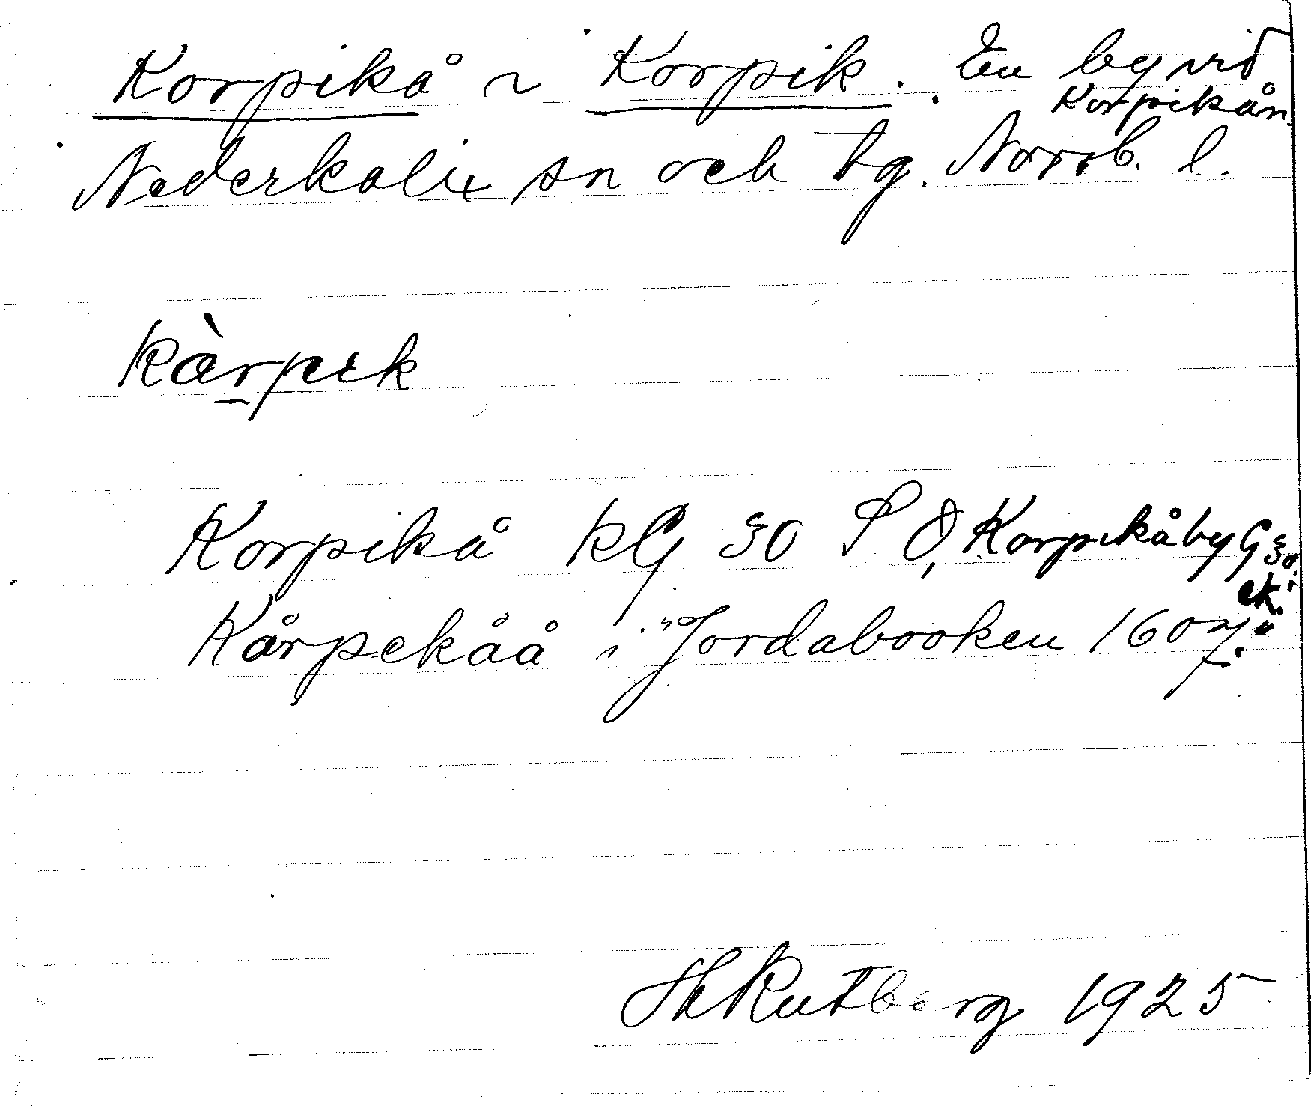 Korpikå ~ Korpik. En by vid
Korpikån.
Nederkalix sn och tg. Norrb. l.
kàrpik
Korpikå kG 30 S O, Korpikåby G 30.
ek.
Kårpekåå i "Jordabooken 1607."
H Rutberg 1925